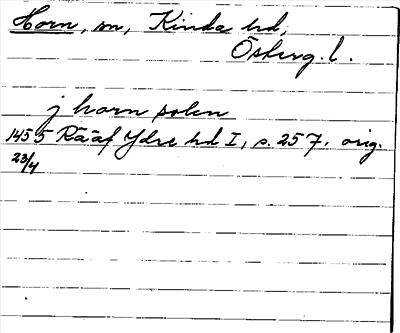 Horn, sn, Kinda hd,
Österg. l.
j horn solen
1455 Rääf Ydre hd I, s. 257. orig.
23/4